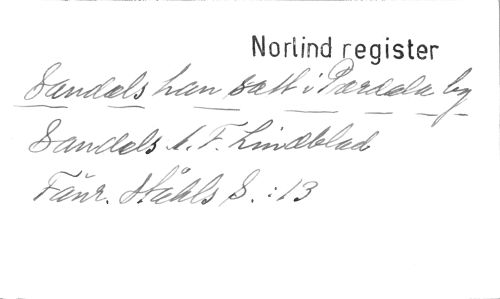 Norlind register
Sandels han satt i Pardala by
Sandels A. F. Lindblad
Fänr. Ståhls S. :13